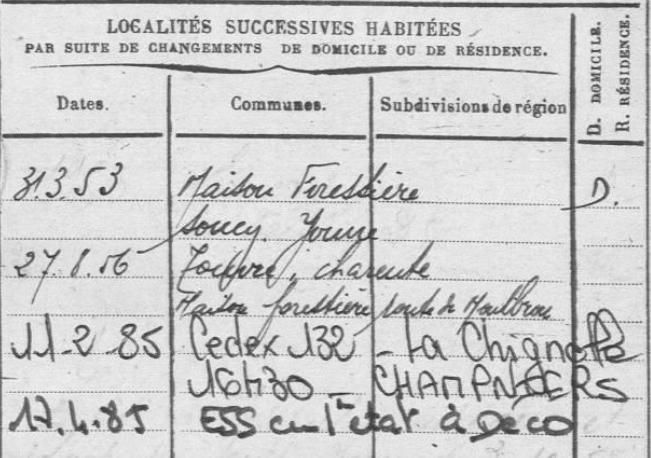 LOCALITÉS SUCCESSIVES HABITÉES
PAR SUITE DE CHANGEMENTS DE DOMICILE OU DE RÉSIDENCE.
D. DOMICILE.
R. RÉSIDENCE.
Dates. Communes. Subdivisions de région
31.3.53 Maison Forestière D.
Soucy. Yonne
27.8.56 Touvre, charente
Maison forestière route de
11-2-85 Cedex 132 - La Chignolle
16430 - CHAMPNIERS
17.4.85 ESS en l'état à Déco